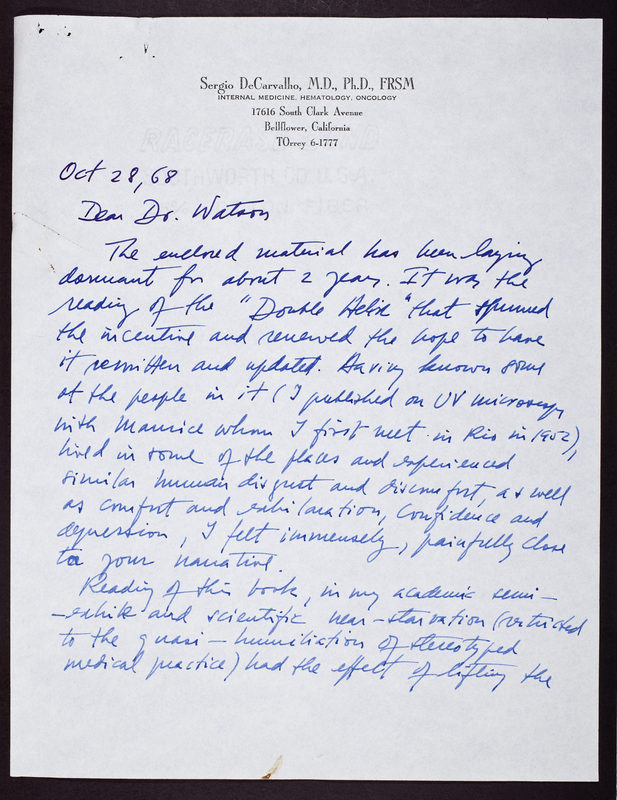 Sergio DeCarvalho, M.D., Ph.D., FRSM
INTERNAL MEDICINE, HEMATOLOGY, ONCOLOGY
17616 South Clark Avenue
Bellflower, California
TOrrey 6-1777
Oct 28, 68
Dear Dr. Watson
The enclosed material has been laying
dormant for about 2 years. It was the
reading of the "Double Helix" that spurred
the incentive and renewed the hope to have
it rewritten and updated. Having known some
of the people in it (I published on UV microscopy
with Maurice whom I first met in Rio in 1952),
lived in some of the places and experienced
similar human disgust and discomfort, as well
as comfort and exhilaration, confidence and
depression, I felt immensely, painfully close
to your narrative.
Reading of this book, in my academic semi-
-exile and scientific near-starvation (restricted
to the quasi-humiliation of stereotyped
medical practice) had the effect of lifting the